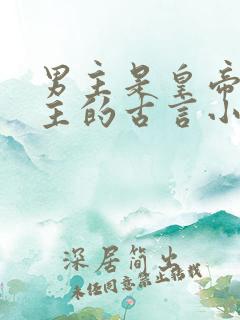 男主是皇帝
主的古言小
深居简出
未经同意禁止转载